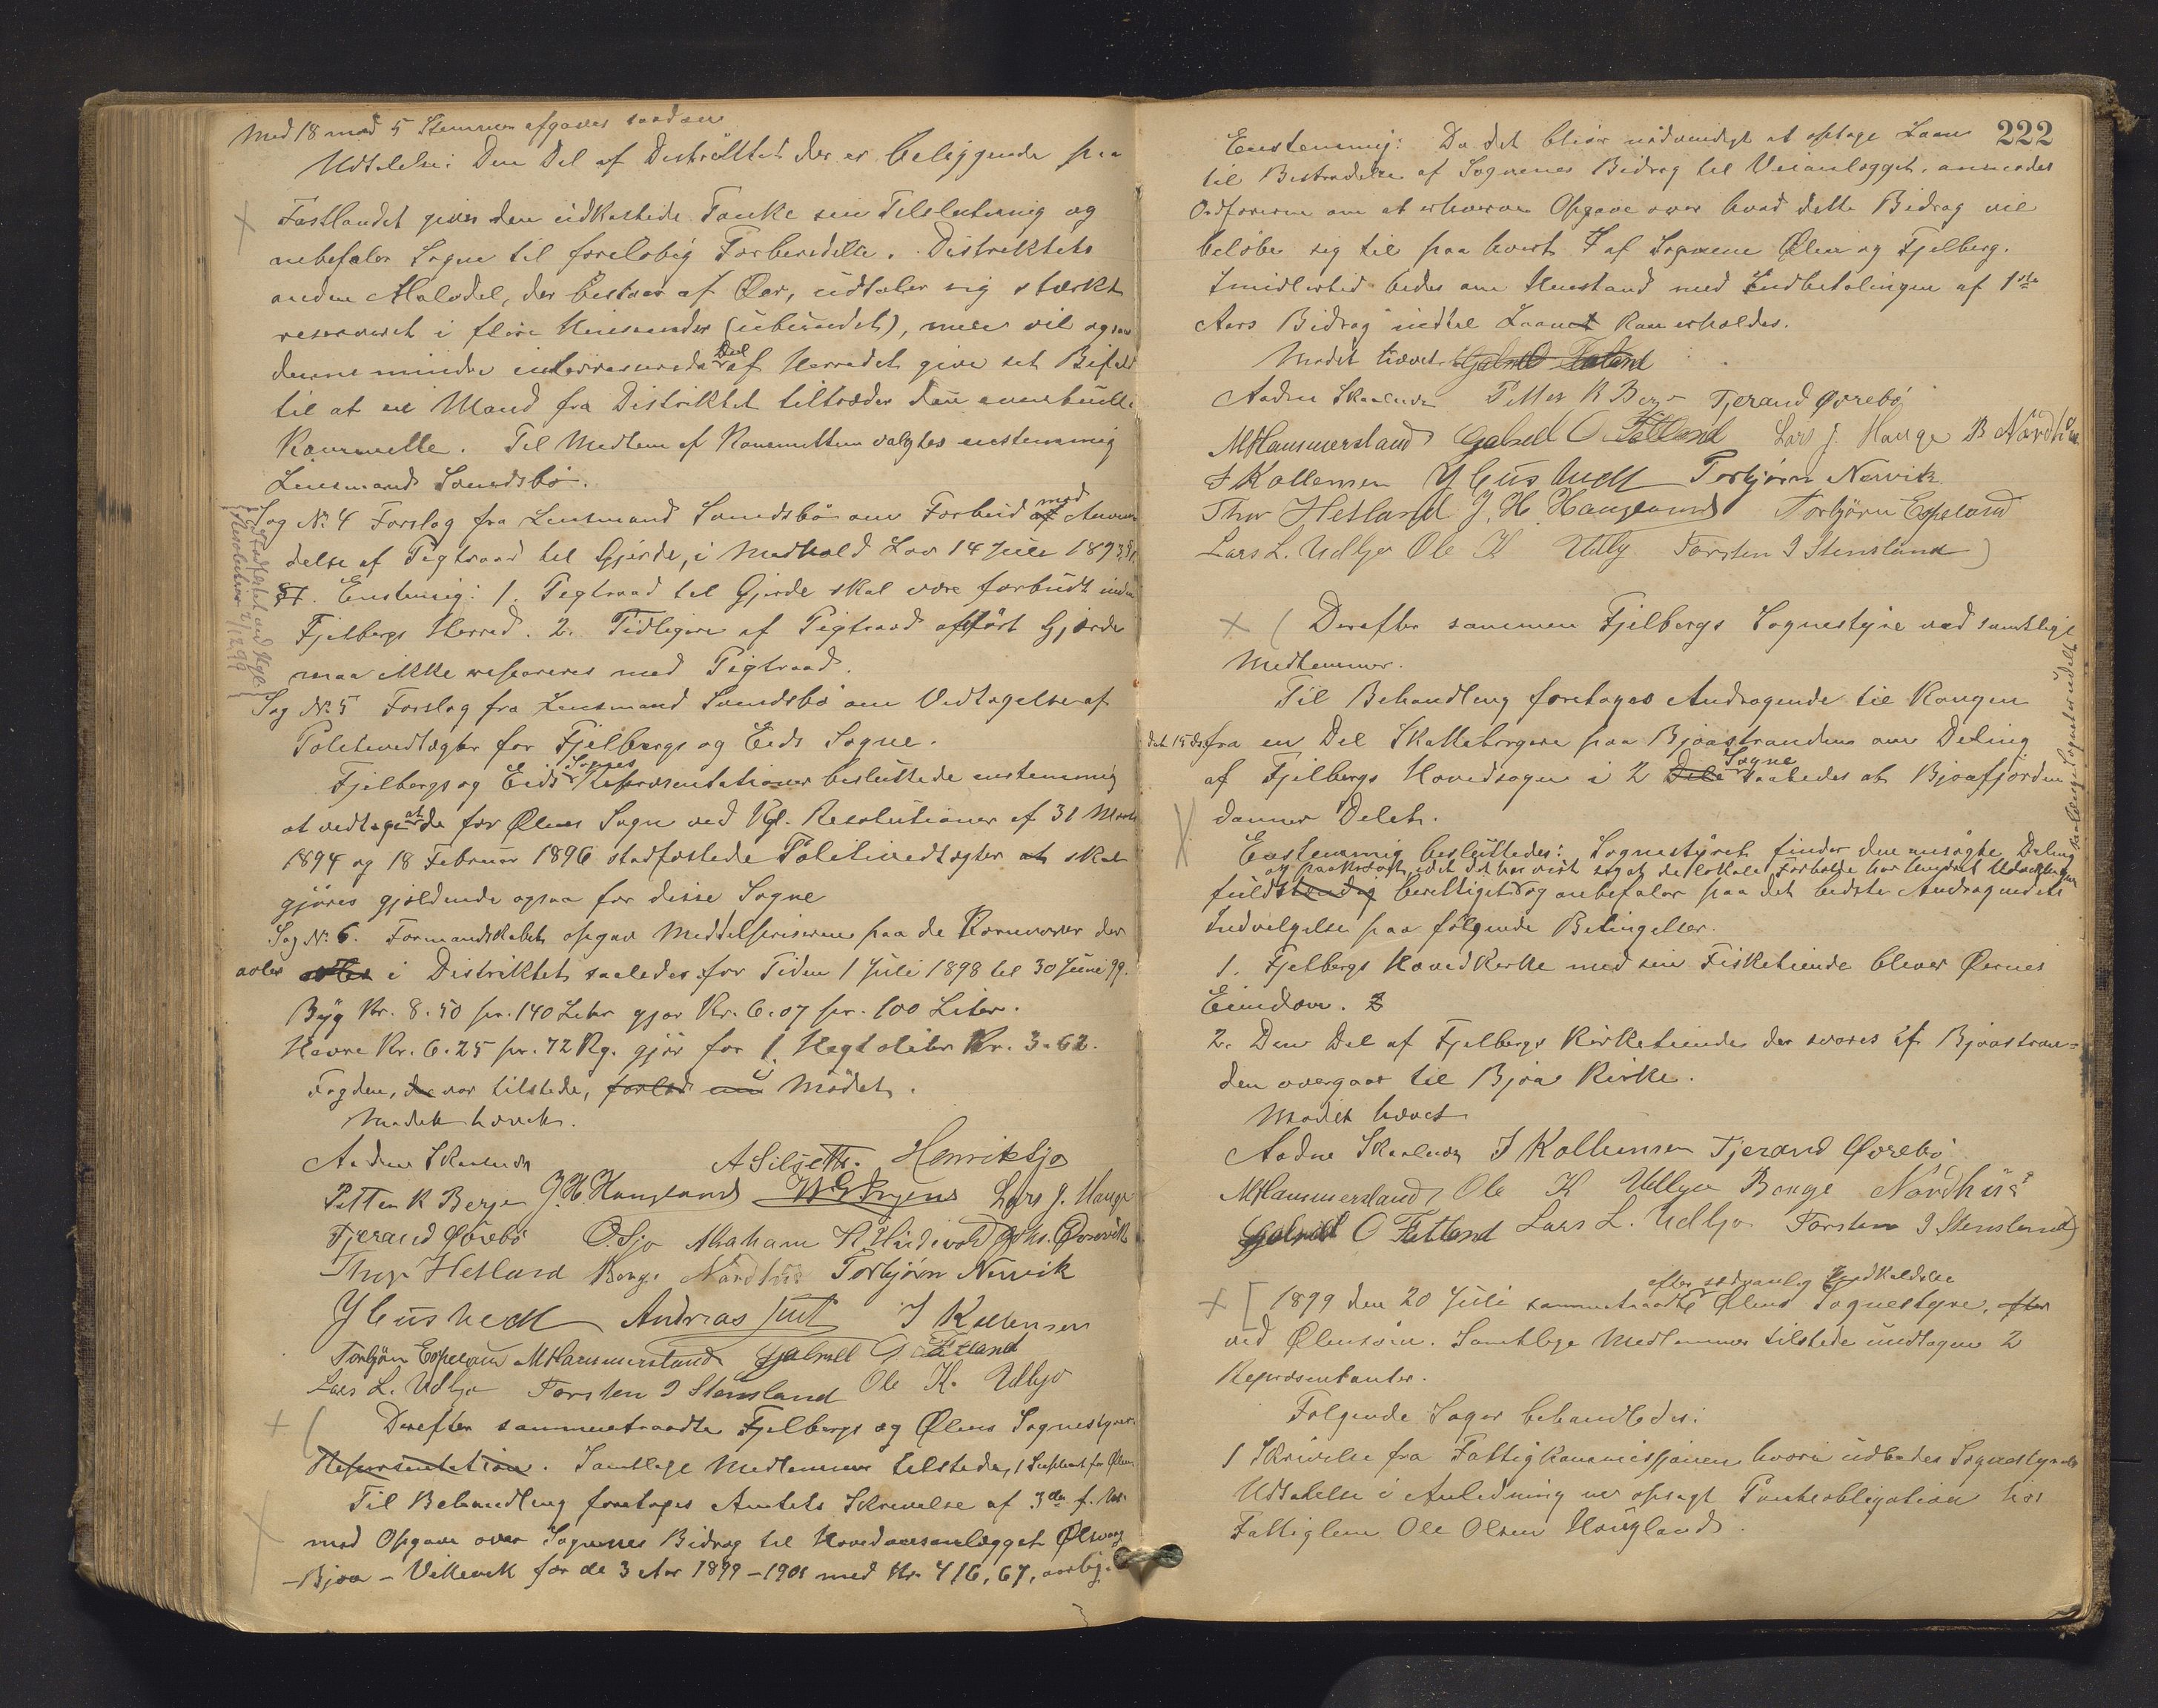 Med 18 mod 5 Stemmer afgaves saadan
Udtalelse: Den Del af Distriktet der er beliggende paa
Fastlandet giver den udkastede Tanke sin Tilslutning og
anbefaler Sagen til foreløbig Forberedelse. Distriktets
anden Halvdel, der bestaar af Øer, udtaler sig stærkt
reserveret i flere Henseender (ubundet), men vil ogsaa
denne mindre interesserede Del af Herredet give sit Bifald
til at en Mand fra Distriktet tiltræder den eventuelle
Kommitte. Til Medlem af Kommitteen valgtes enstemmig
Lensmand Svendsbø.
Sag No 4 Forslag fra Lensmand Svendsbø om Forbud mod Anven
delse af Pigtraad til Gjerde, i Medhold Lov 14 Juli 1893
Enstemmig: 1. Pigtraad til Gjerde skal være forbudt inden
Fjelbergs Herred. 2. Tidligere af Pigtraad opført Gjærde
maa ikke repareres med Pigtraad.
Stadfæstet ved Kgl.
Resolution 2/12 99
Sag No 5 Forslag fra Lensmand Svendsbø om Vedtagelse af
Politivedtægter for Fjelbergs og Eids Sogne.
Fjelbergs og Eids Sognes Repræsentationer besluttede enstemmig
at vedtage at de for Ølens Sogn ved Kgl. Resolutioner af 31 Marts
1894 og 18 Februar 1896 stadfæstede Politivedtægter skal
gjøres gjeldende ogsaa for disse Sogne
Sag No 6. Formandskabet opgav Middelpriserne paa de Kornvarer der
avles i Distriktet saaledes for Tiden 1 Juli 1898 til 30 Juni 99.
Byg Kr. 8.50 pr. 140 Liter gjør Kr. 6.07 pr. 100 Liter.
Havre Kr. 6.25 pr. 72 Kg. gjør for 1 Hegtoliter Kr. 3.62.
Fogden, var tilstede, i Mødet.
Mødet hævet.
Aadne Skaalnes A Silseth. Henrik Sjo
Petter K Berge J. H. Haugland Lars J. Hauge
Tjerand Øvrebø O. Sjo Abraham H. Johs. Øvrevik
Thor Hetland Borge Nordhus Torbjørn Nervik
Andreas Tuit I Kallensen
Torbjørn Espeland M Hammersland Gabriel O Fatland
Lars L. Udbjo Torsten I Stensland Ole K. Udbjo
Derefter sammentraadte Fjelbergs og Ølens Sognestyrer
Repræsentation. Samtlige Medlemmer tilstede, 1 Supleant for Ølen.
Til Behandling foretages Amtets Skrivelse af 3die f. M.
med Opgave over Sognenes Bidrag til Hovedveisanlægget Ølsvaag
- Bjoa - Vikevik for de 3 Aar 1899 - 1901 med Kr. 416,67, aarlig.
222
Enstemmig: Da det bliver nødvendigt at optage Laan
til Bestridelse af Sognenes Bidrag til Veianlægget, anmodes
Ordførerne om at erhverve Opgave over hvad dette Bidrag vil
beløbe sig til paa hvert af Sognene Ølen og Fjelberg.
Imidlertid bedes om Henstand med Indbetalingen af 1ste
Aars Bidrag indtil Laanet kan erholdes.
Mødet hævet. Gabriel Fatland
Aadne Skaalnes Petter K Berge Tjerand Øvrebø
M Hammersland Gabriel O Fatland Lars J. Hauge B Nordhus
I Kallensen Torbjørn Nervik
Thor Hetland J. H. Haugland Torbjørn Espeland
Lars L. Udbjo Ole K Udbjo Torsten I Stensland
Derefter sammen Fjelbergs Sognestyre med samtlige
Medlemmer.
Til Behandling foretages Andragende til Kongen
dat 15 ds. fra en Del Skatteborgere paa Bjoastranden om Deling
af Fjelbergs Hovedsogn i 2 Sogne saaledes at Bjoafjorden
danner Delet.
Enstemmig besluttedes: Sognestyret finder den ansøgte Deling
og paakrævet, idet det har vist sig at de lokale Forholde har hindret Udviklingen
saalænge Sognet er udelt
fuldstændig berettiget og anbefaler paa det bedste Andragendets
Indvilgelse paa følgende Betingelser.
1. Fjelbergs Hovedkirke med sin Fisketiende bliver Øernes
Eiendom.
2. Den Del af Fjelbergs Kirketiende der svares af Bjoastran=
den overgaar til Bjoa Kirke.
Mødet hævet
Aadne Skaalnes I Kallensen Tjerand Øvrebø
M Hammersland Ole K Udbjo Borge Nordhus
Gabriel O Fatland Lars L. Udbjo Torsten I Stensland
1899 den 20 Juli sammentraadte efter sædvanlig Indkaldelse Ølens Sognestyre, efter
ved Ølensøen. Samtlige Medlemmer tilstede undtagen 2
Repræsentanter.
Følgende Sager behandledes:
1 Skrivelse fra Fattigkommissionen hvori udbedes Sognestyrets
Udtalelse i Anledning en opsagt Panteobligation hos
Fattiglem Ole Olsen Haugland.